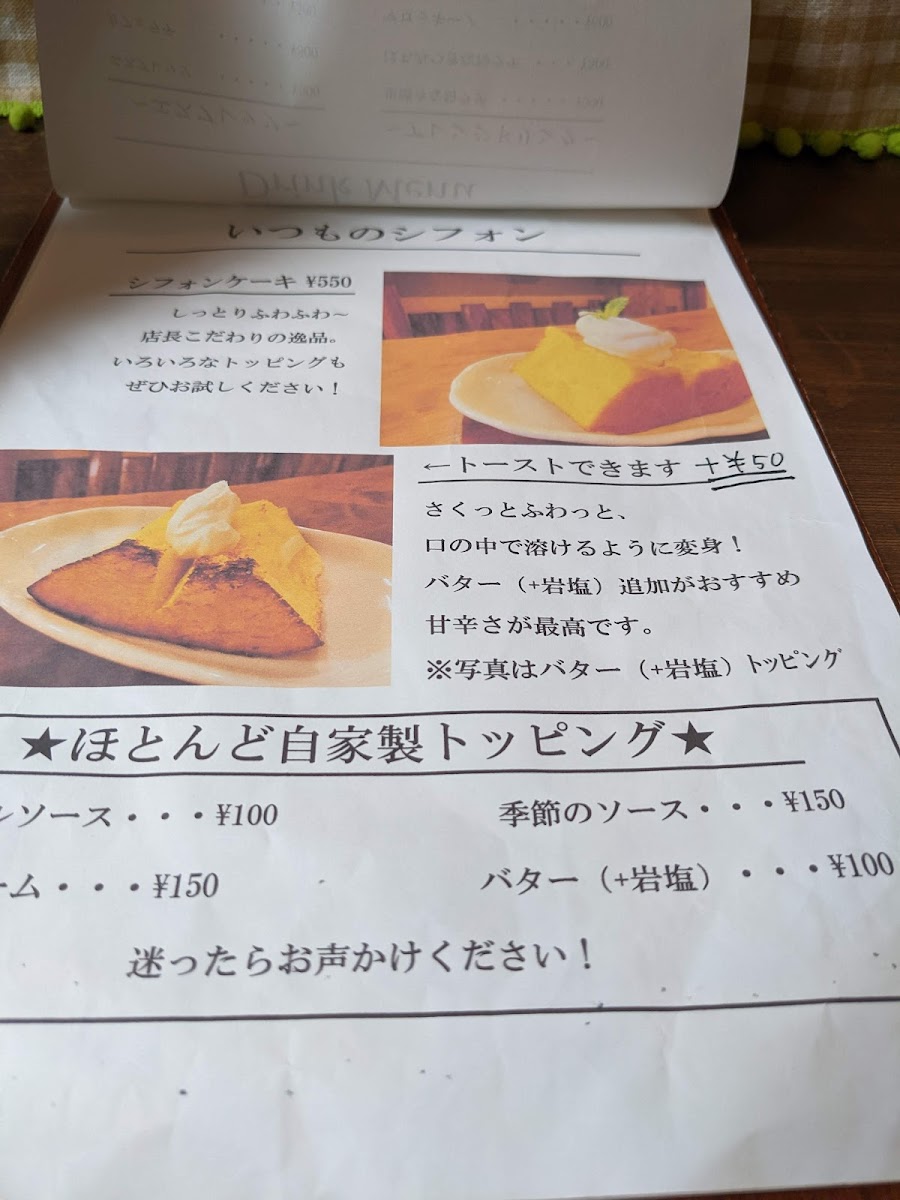 Drink Menu
いつものシフォン
シフォンケーキ ¥550
しっとりふわふわ～
店長こだわりの逸品。
いろいろなトッピングも
ぜひお試しください！
←トーストできます +¥50
さくっとふわっと、
口の中で溶けるように変身！
バター（+岩塩）追加がおすすめ
甘辛さが最高です。
※写真はバター（+岩塩）トッピング
★ほとんど自家製トッピング★
ルソース・・・¥100
季節のソース・・・¥150
ーム・・・¥150
バター（+岩塩）・・・¥100
迷ったらお声かけください！